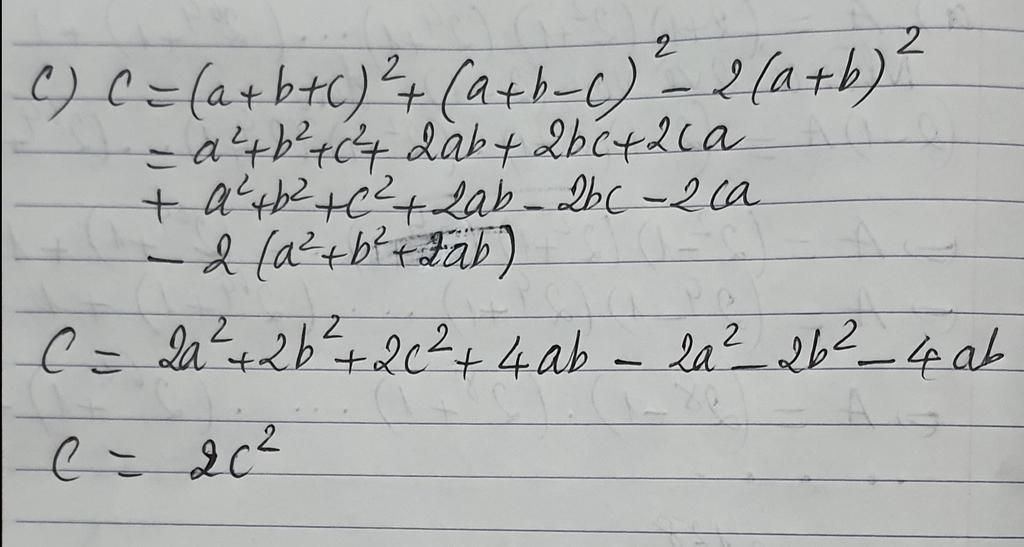 c) C = (a+b+c)² + (a+b-c)² - 2(a+b)²
= a²+b²+c²+ 2ab + 2bc+2ca
+ a²+b²+c²+2ab - 2bc - 2ca
- 2 (a²+b²+2ab)
C = 2a²+2b²+2c²+4ab - 2a² - 2b² - 4ab
C = 2c²